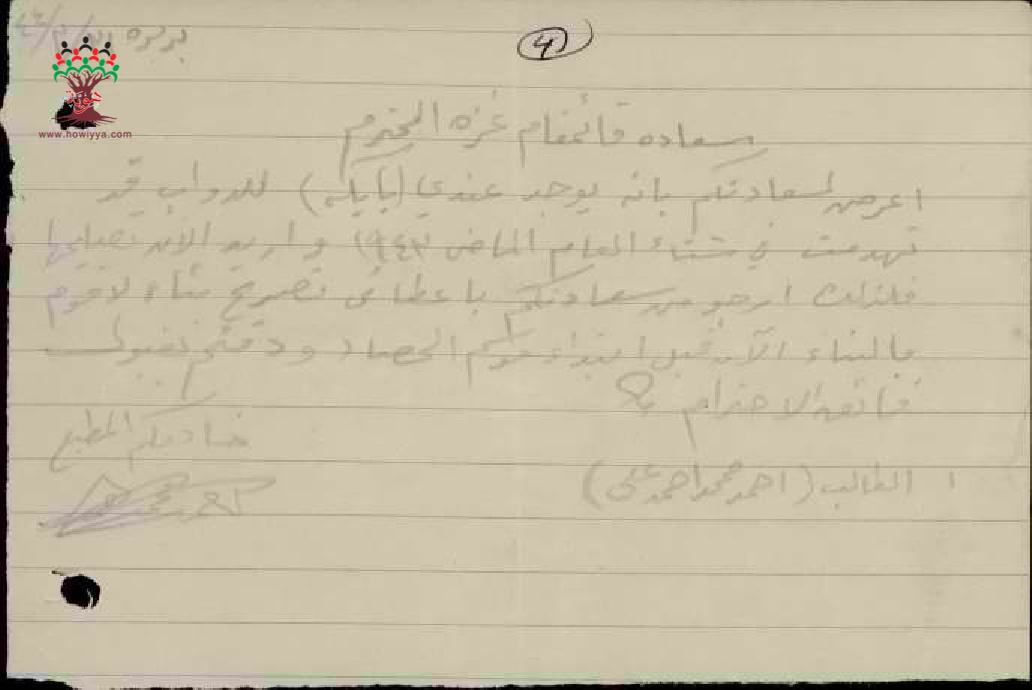 بربره
4
www.howiyya.com
سعاده قائمقام غزه المحترم
اعرض لسعادتكم بانه يوجد عندي (بايكه) للدواب قد
تهدمت في شتاء العام الماضي ١٩٤٣ واريد الآن تصليحها
فلذلك ارجو من سعادتكم باعطائي تصريح بناء لاقوم
بالبناء الآن قبل ابتداء موسم الحصاد ودمتم
فائق الاحترام
خادمكم المطيع
الطالب (احمد محمد احمد علي)